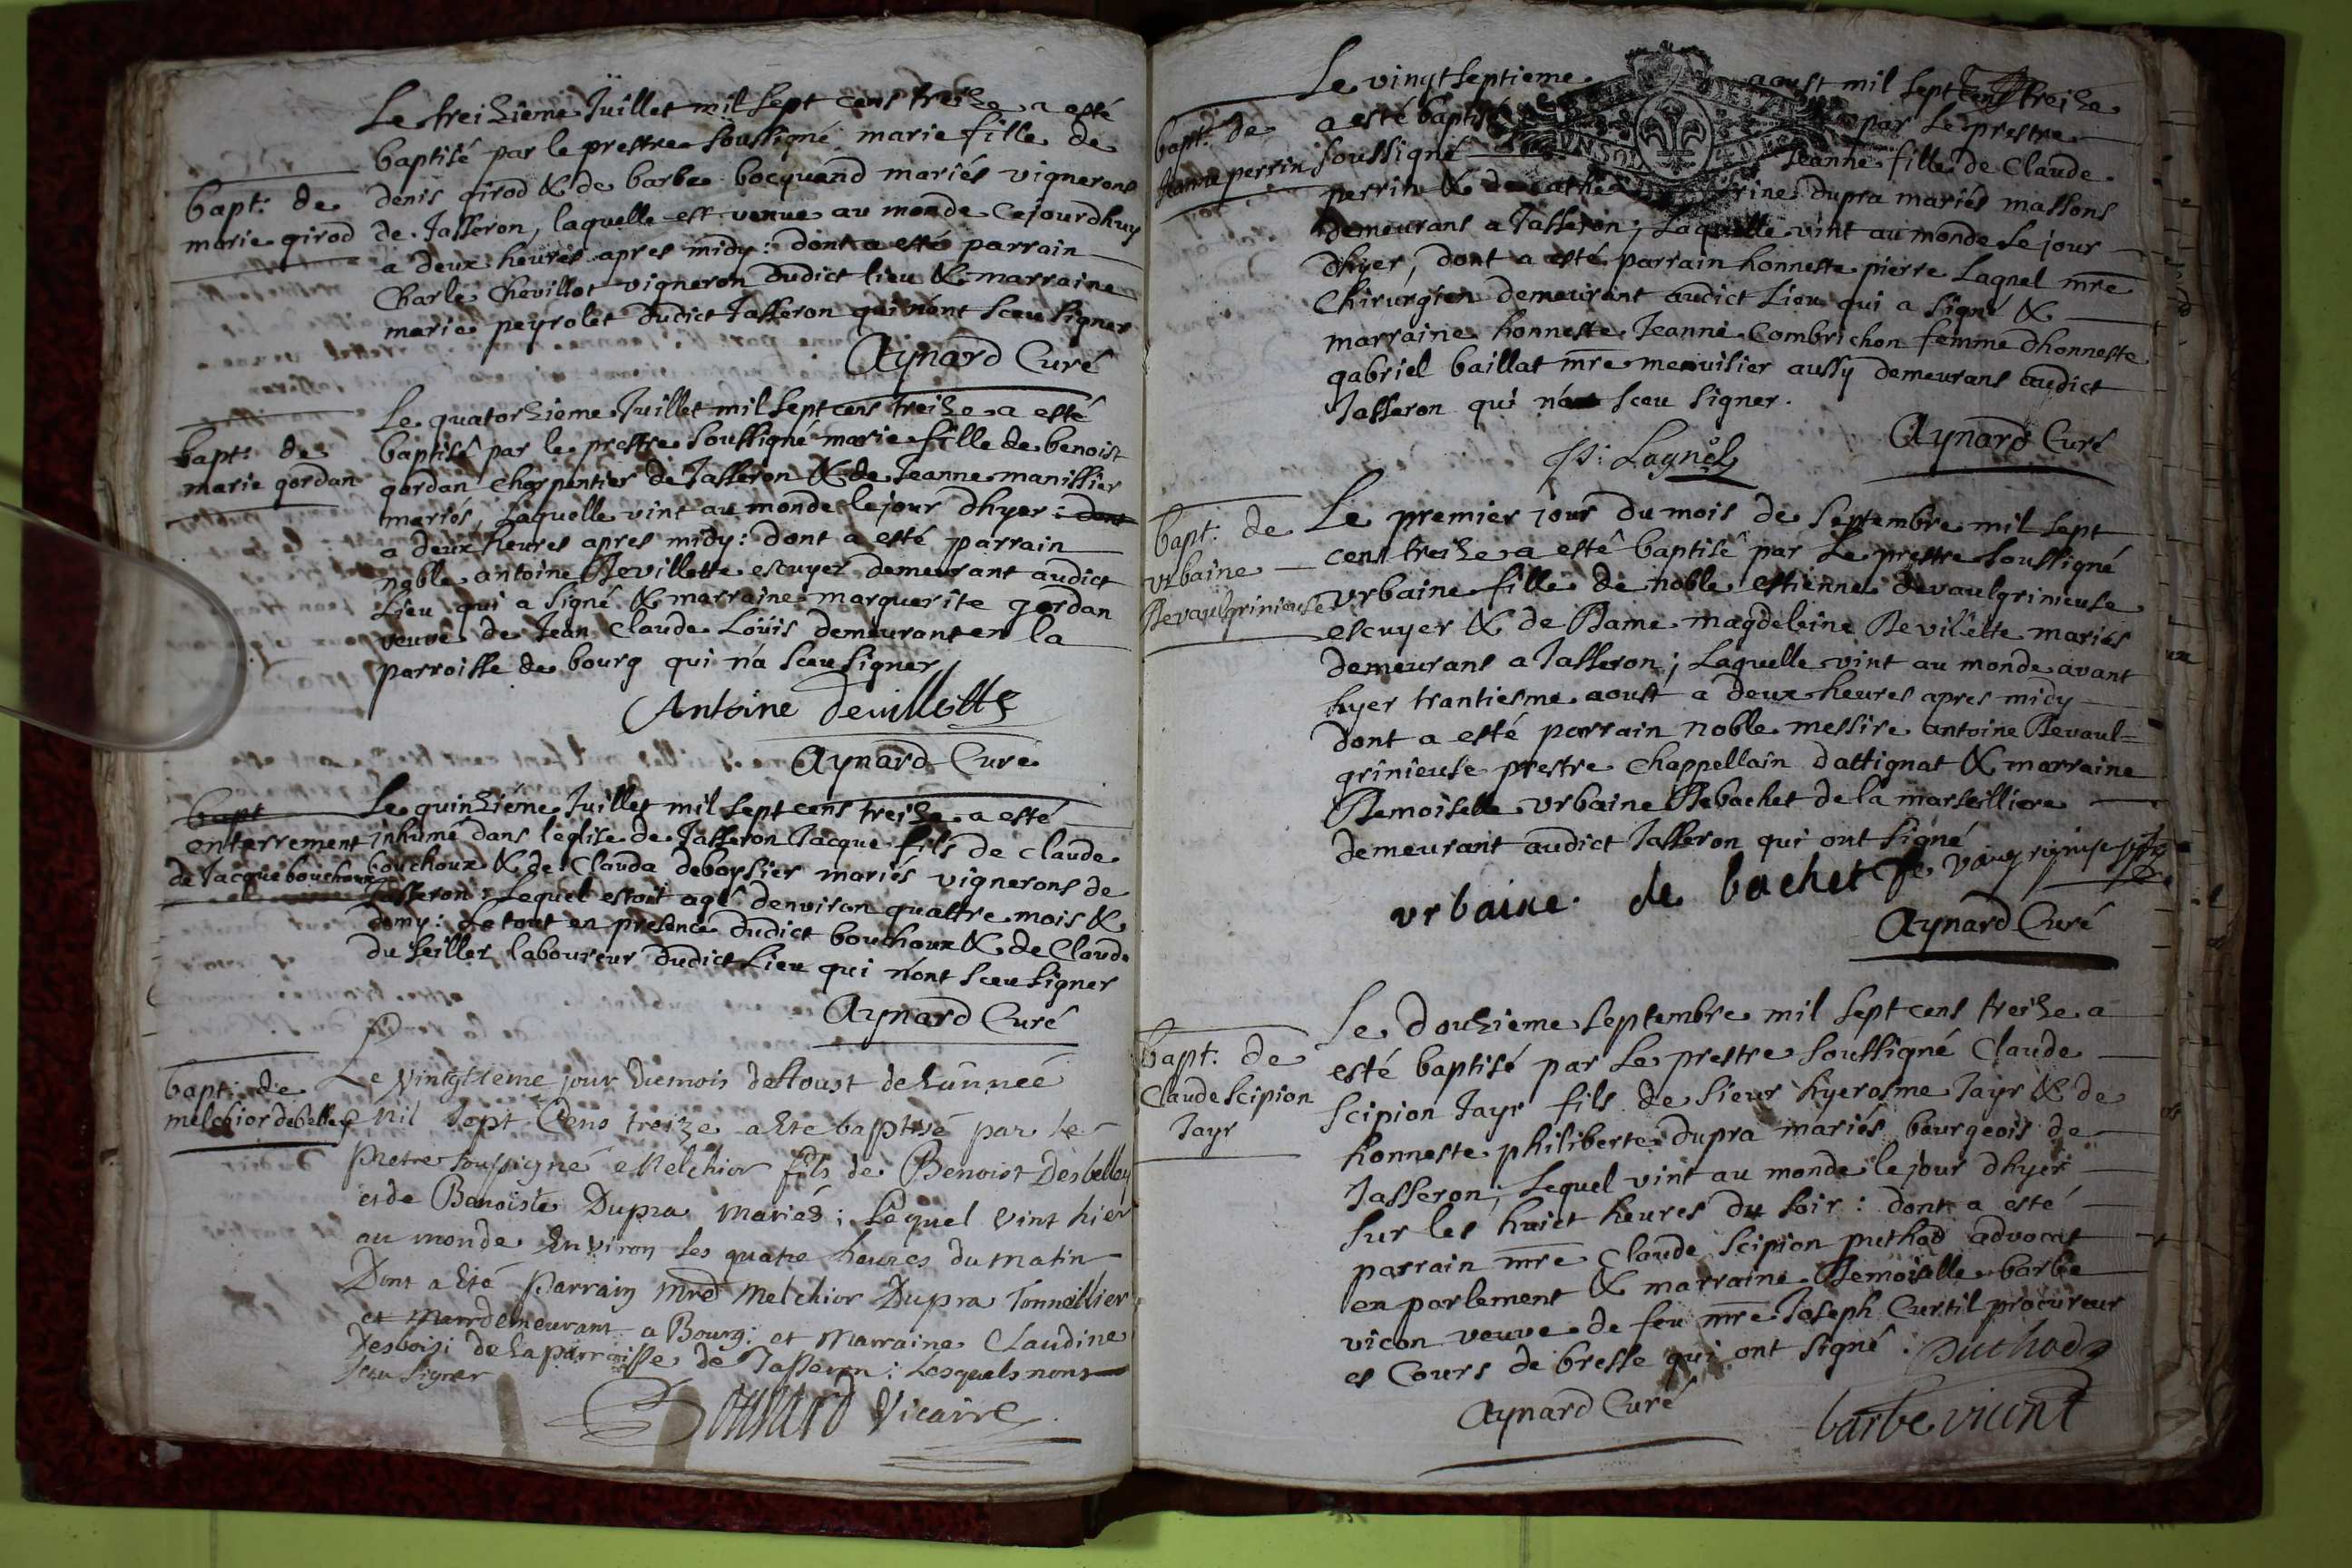 Le treizieme Juillet mil sept cens treize a esté
baptisé par le prestre soussigné marie fille de
bapt: de
marie girod
denis girod & de barbe bocquand mariés vignerons
de Jasseron, laquelle est venue au monde cejourdhuy
a deux heures apres midy: dont a esté parrain
Charle Chevillot vigneron dudict lieu & marraine
marie peyrolet dudict Jasseron qui n'ont sceu signer
Aynard Curé
Le quatorzieme Juillet mil sept cens treize a esté
bapt: de
marie gordan
baptisé par le prestre soussigné marie fille de benoist
gordan charpentier de Jasseron & de Jeanne manissier
mariés, laquelle vint au monde le jour dhyer: dont
a deux heures apres midy: dont a esté parrain
noble antoine Devillette escuyer demeurant audict
lieu qui a signé & marraine marguerite gordan
veuve de Jean Claude Loüis demeurant en la
parroisse de bourg qui n'a sceu signer
Antoine devillette
Aynard Curé
bapt
enterrement
de Jacque bouchoux
Le quinzieme Juillet mil sept cens treize a esté
inhumé dans l'eglise de Jasseron Jacque fils de claude
bouchoux & de Clauda deborsier mariés vignerons de
Jasseron; Lequel estoit agé denviron quattre mois &
demy: Le tout en presence dudict bouchoux & de Claude
du seiller laboureur dudict lieu qui n'ont sceu signer
Aynard Curé
bapt: de
melchior debelley
Le vingtieme jour du mois de Aoust de L'année
Mil sept Cens treize a Eté baptisé par le
Pretre soussigné Melchior fils de Benoist Desbelley
et de Benoiste Dupra mariés; Lequel vint hier
au monde Environ les quatre heures du matin
Dont a Eté Parrain mre Melchior Dupra Tonnellier
et Marr demeurant a Bourg: et Marraine Claudine
Desbois; de La parroisse de Jasseron: Lesquels nont
sceu signer
Vicaire
Le vingtseptieme aoust mil sept cens treize
bapt: de
Jeanne perrin
a esté baptisé par Le prestre
soussigné Jeanne fille de Claude
perrin & de cathe rine dupra mariés massons
demeurans a Jasseron; Laquelle vint au monde le jour
dhyer, dont a esté parrain honneste pierre Lagnel mre
Chirurgien demeurant audict Lieu qui a signé &
marraine honneste Jeanne Combrichon femme dhonneste
gabriel baillat mre menuisier aussy demeurans audict
Jasseron qui n'a sceu signer.
p: Lagnel
Aynard Curé
bapt: de
urbaine
Devaulgrinieuse
Le premier jour du mois de Septembre mil sept
cens treize a esté baptisé par Le prestre soussigné
urbaine fille de noble estienne devaulgrinieuse
escuyer & de Dame magdeleine Devilette mariés
demeurans a Jasseron; Laquelle vint au monde avant
hyer trantiesme aoust a deux heures apres midy
dont a esté parrain noble messire antoine Devaul=
grinieuse prestre Chappellain dattignat & marraine
Demoiselle urbaine Debachet de la marseilliere
demeurant audict Jasseron qui ont signé
urbaine de bachet
Aynard Curé
bapt: de
Claude Scipion
Jayr
Le douzieme septembre mil sept cens treize a
esté baptisé par Le prestre soussigné Claude
Scipion Jayr fils de sieur hyerosme Jayr & de
honneste philiberte dupra mariés bourgeois de
Jasseron; Lequel vint au monde le jour dhyer
sur les huict heures du soir: dont a esté
parrain mre Claude Scipion puthod advocat
en parlement & marraine Demoiselle barbe
vicon veuve de feu mre Joseph Curtil procureur
es Cours de bresse qui ont signé:
Puthod
Aynard Curé
barbe vicont